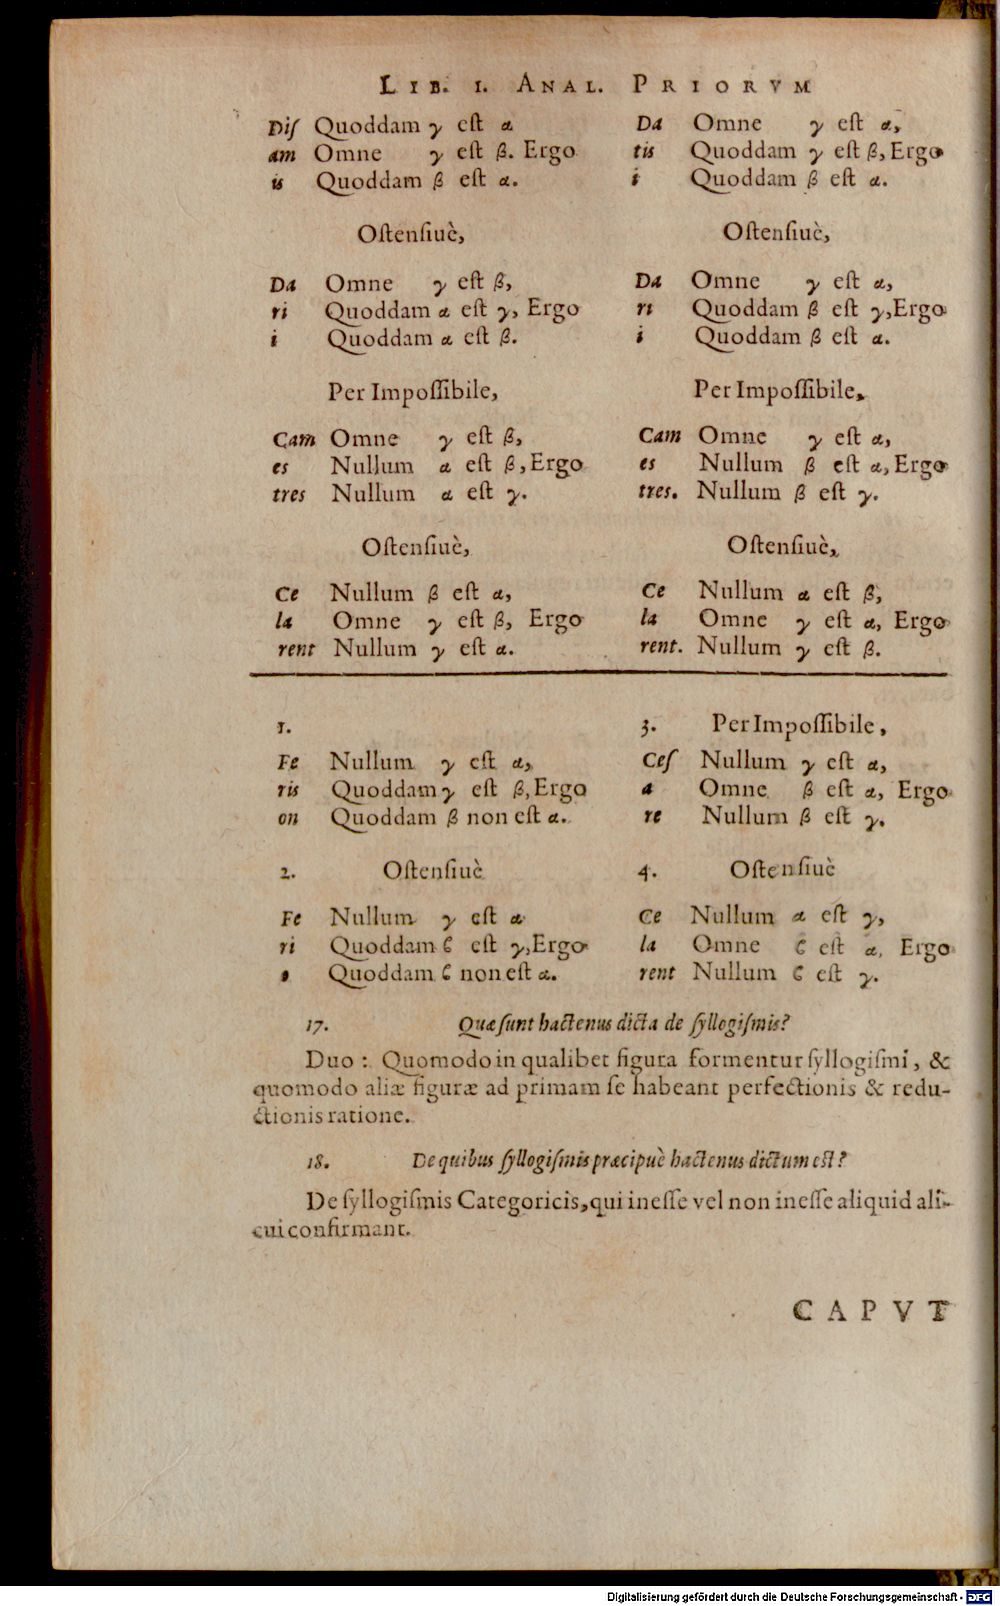 LIB. I. ANAL. PRIORVM
Diſ Quoddam γ eſt α
am Omne γ eſt β. Ergo
is Quoddam β eſt α.
Oſtenſiuè,
Da Omne γ eſt β,
ri Quoddam α eſt γ, Ergo
i Quoddam α eſt β.
Per Impoſſibile,
Cam Omne γ eſt β,
es Nullum α eſt β, Ergo
tres Nullum α eſt γ.
Oſtenſiuè,
Ce Nullum β eſt α,
la Omne γ eſt β, Ergo
rent Nullum γ eſt α.
Da Omne γ eſt α,
tis Quoddam γ eſt β, Ergo
i Quoddam β eſt α.
Oſtenſiuè,
Da Omne γ eſt α,
ri Quoddam β eſt γ, Ergo
i Quoddam β eſt α.
Per Impoſſibile,
Cam Omne γ eſt α,
es Nullum β eſt α, Ergo
tres. Nullum β eſt γ.
Oſtenſiuè,
Ce Nullum α eſt β,
la Omne γ eſt α, Ergo
rent. Nullum γ eſt β.
1.
Fe Nullum γ eſt α,
ris Quoddam γ eſt β, Ergo
on Quoddam β non eſt α.
2. Oſtenſiuè
Fe Nullum γ eſt α
ri Quoddam ϐ eſt γ, Ergo
o Quoddam ϐ non eſt α.
3. Per Impoſſibile,
Ceſ Nullum γ eſt α,
a Omne β eſt α, Ergo
re Nullum β eſt γ.
4. Oſtenſiuè
Ce Nullum α eſt γ,
la Omne ϐ eſt α, Ergo
rent Nullum ϐ eſt γ.
17. Quæ ſunt hactenus dicta de ſyllogiſmis?
Duo: Quomodo in qualibet figura formentur ſyllogiſmi, &
quomodo aliæ figuræ ad primam ſe habeant perfectionis & redu-
ctionis ratione.
18. De quibus ſyllogiſmis præcipuè hactenus dictum eſt?
De ſyllogiſmis Categoricis, qui ineſſe vel non ineſſe aliquid ali-
cui confirmant.
CAPVT
Digitalisierung gefördert durch die Deutsche Forschungsgemeinschaft - DFG